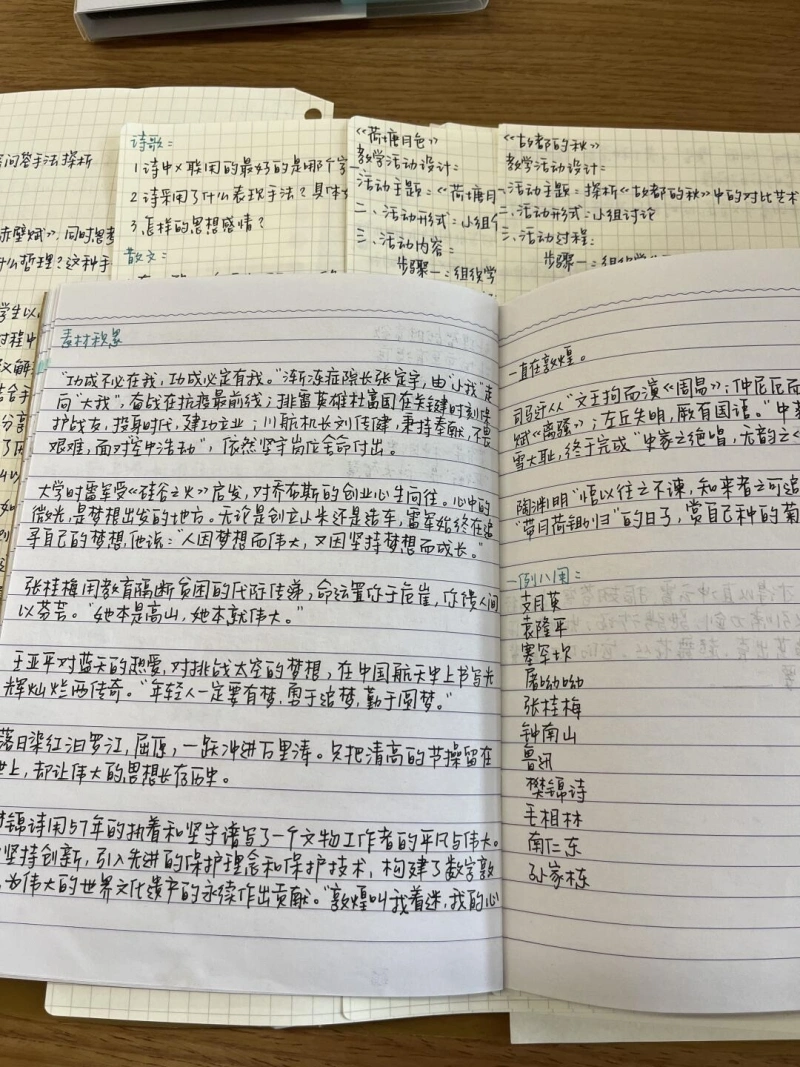 问答手法探析
赤壁赋》,同时思考
什么哲理?这种手
学生以
过程中
诗歌:
1 诗中X联用的最好的是哪个字
2 诗采用了什么表现手法?具体
3 怎样的思想感情?
散文:
《荷塘月色》
教学活动设计:
一、活动主题:《荷塘月
二、活动形式:小组
三、活动内容:
步骤一:组织学
《故都的秋》
教学活动设计:
一、活动主题:探析《故都的秋》中的对比艺术
二、活动形式:小组讨论
三、活动过程:
步骤一:组织学
素材积累
"功成不必在我,功成必定有我。"渐冻症院长张定宇,由"小我"走
向"大我",奋战在抗疫最前线;排雷英雄杜富国在关键时刻保
护战友,投身时代,建功立业;川航机长刘传健,秉持奉献,不畏
艰难,面对"空中浩劫",依然坚守岗位全命付出。
大学时雷军受《硅谷之火》启发,对乔布斯的创业心生向往。心中的
微光,是梦想出发的地方。无论是创立小米还是造车,雷军始终在追
寻自己的梦想,他说:"人因梦想而伟大,又因坚持梦想而成长。"
张桂梅用教育隔断贫困的代际传递,命运置你于危崖,你馈人间
以芬芳。"她本是高山,她本就伟大。"
王亚平对蓝天的热爱,对挑战太空的梦想,在中国航天史上书写光
辉灿烂的传奇。"年轻人一定要有梦,勇于追梦,勤于圆梦。"
落日染红汨罗江,屈原,一跃冲进万里涛。只把清高的节操留在
世上,却让伟大的思想长存历史。
樊锦诗用57年的执着和坚守谱写了一个文物工作者的平凡与伟大。
坚持创新,引入先进的保护理念和保护技术,构建了数字敦
为伟大的世界文化遗产的永续作出贡献。"敦煌叫我着迷,我的心
一直在敦煌。
司马迁从"文王拘而演《周易》;仲尼厄而
赋《离骚》;左丘失明,厥有国语。"中
雪大耻,终于完成"史家之绝唱,无韵之
陶渊明"悟以往之不谏,知来者之可追
"带月荷锄归"的日子,赏自己种的菊
一例八用:
支月英
袁隆平
塞罕坝
屠呦呦
张桂梅
钟南山
鲁迅
樊锦诗
毛相林
南仁东
孙家栋